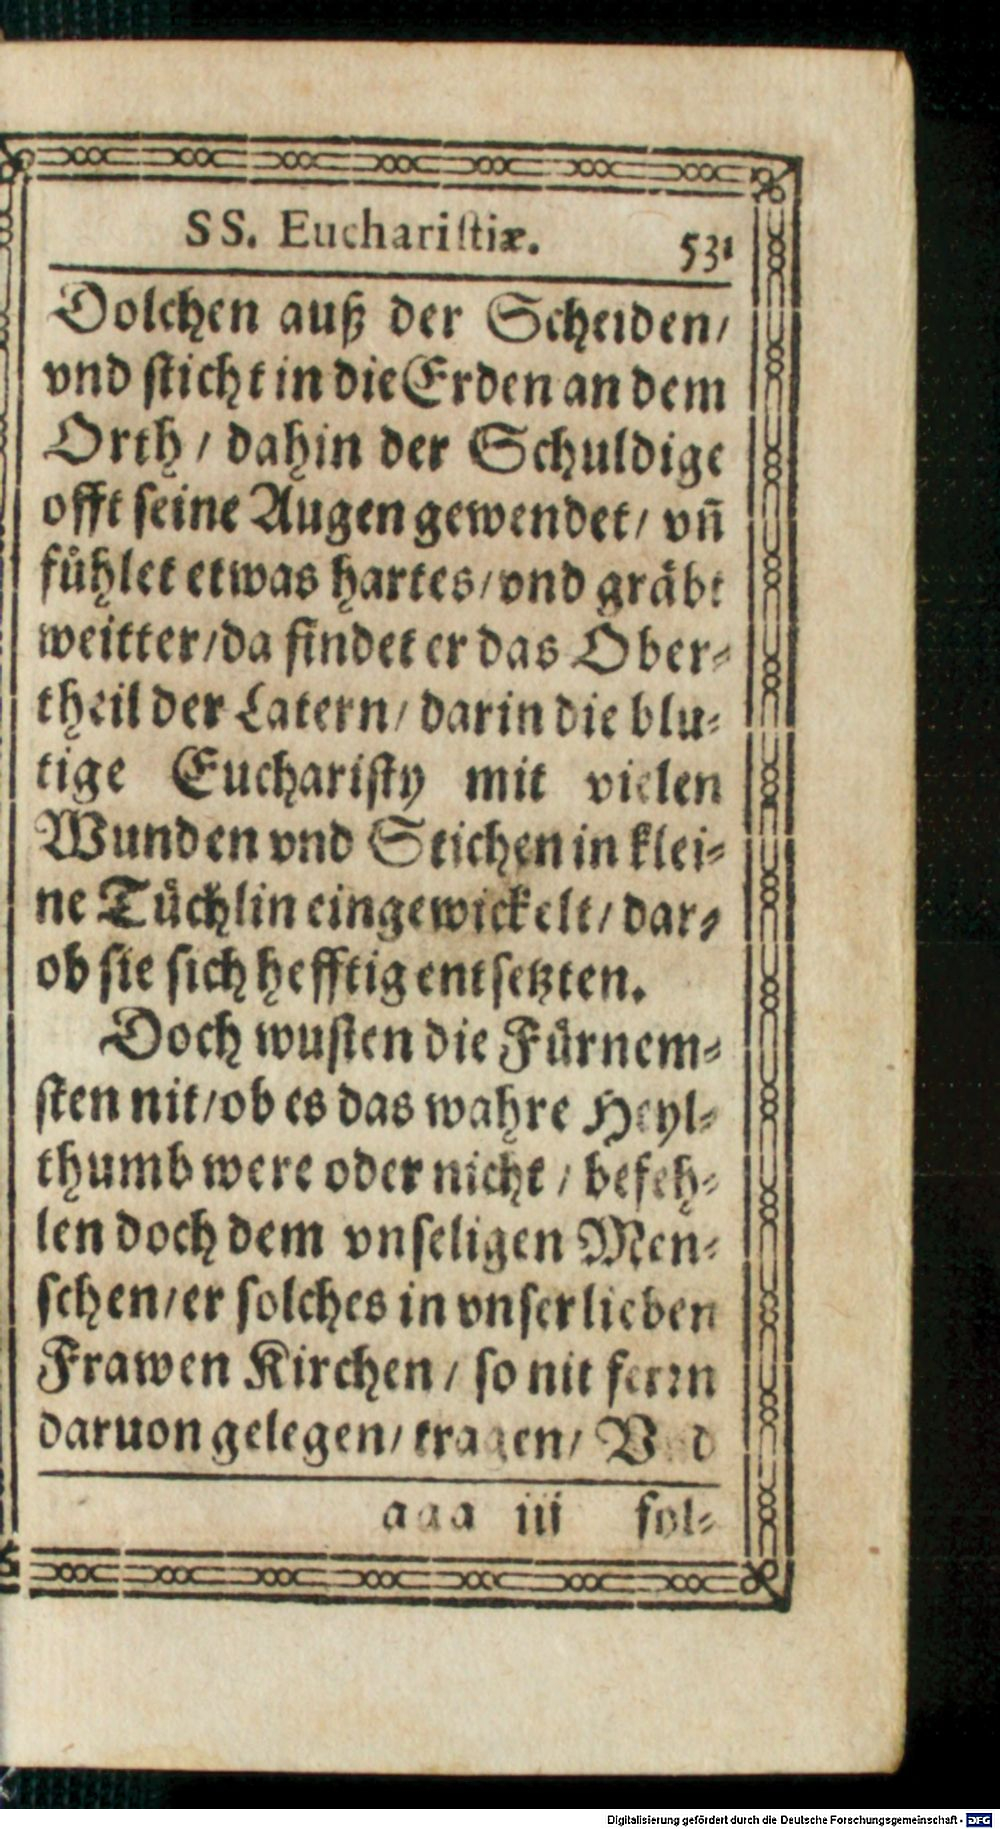 SS. Euchariſtiæ. 531
Dolchen auß der Scheiden/
vnd ſticht in die Erden an dem
Orth / dahin der Schuldige
offt ſeine Augen gewendet/ vñ
fuͤhlet etwas hartes/ vnd graͤbt
weitter/ da findet er das Ober⸗
theil der Latern/ darin die blu⸗
tige Euchariſty mit vielen
Wunden vnd Stichen in klei⸗
ne Tuͤchlin eingewickelt/ dar⸗
ob ſie ſich hefftig entſetzten.
Doch wuſten die Fuͤrnem⸗
ſten nit/ ob es das wahre Heyl⸗
thumb were oder nicht / befeh⸗
len doch dem vnſeligen Men⸗
ſchen/ er ſolches in vnſer lieben
Frawen Kirchen / ſo nit ferrn
daruon gelegen/ tragen/ Vnd
aaa iij ſol⸗
Digitalisierung gefördert durch die Deutsche Forschungsgemeinschaft - DFG